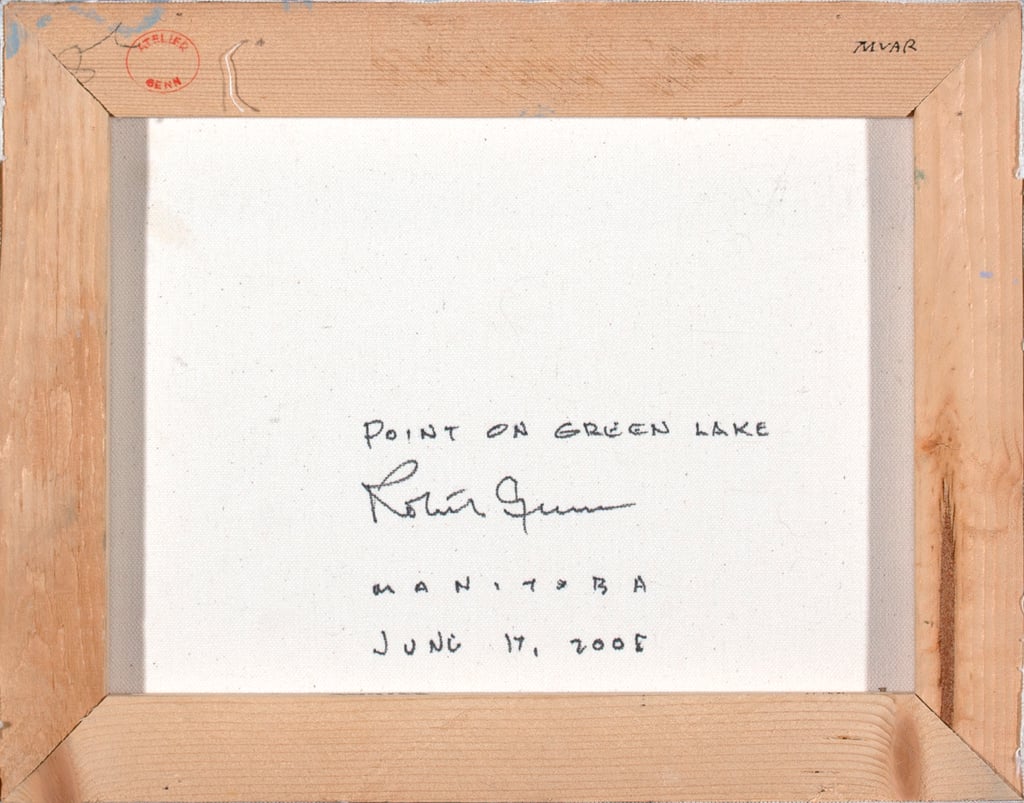 ATELIER
GENN
MVAR
POINT ON GREEN LAKE
Robert Genn
MANITOBA
JUNE 17,